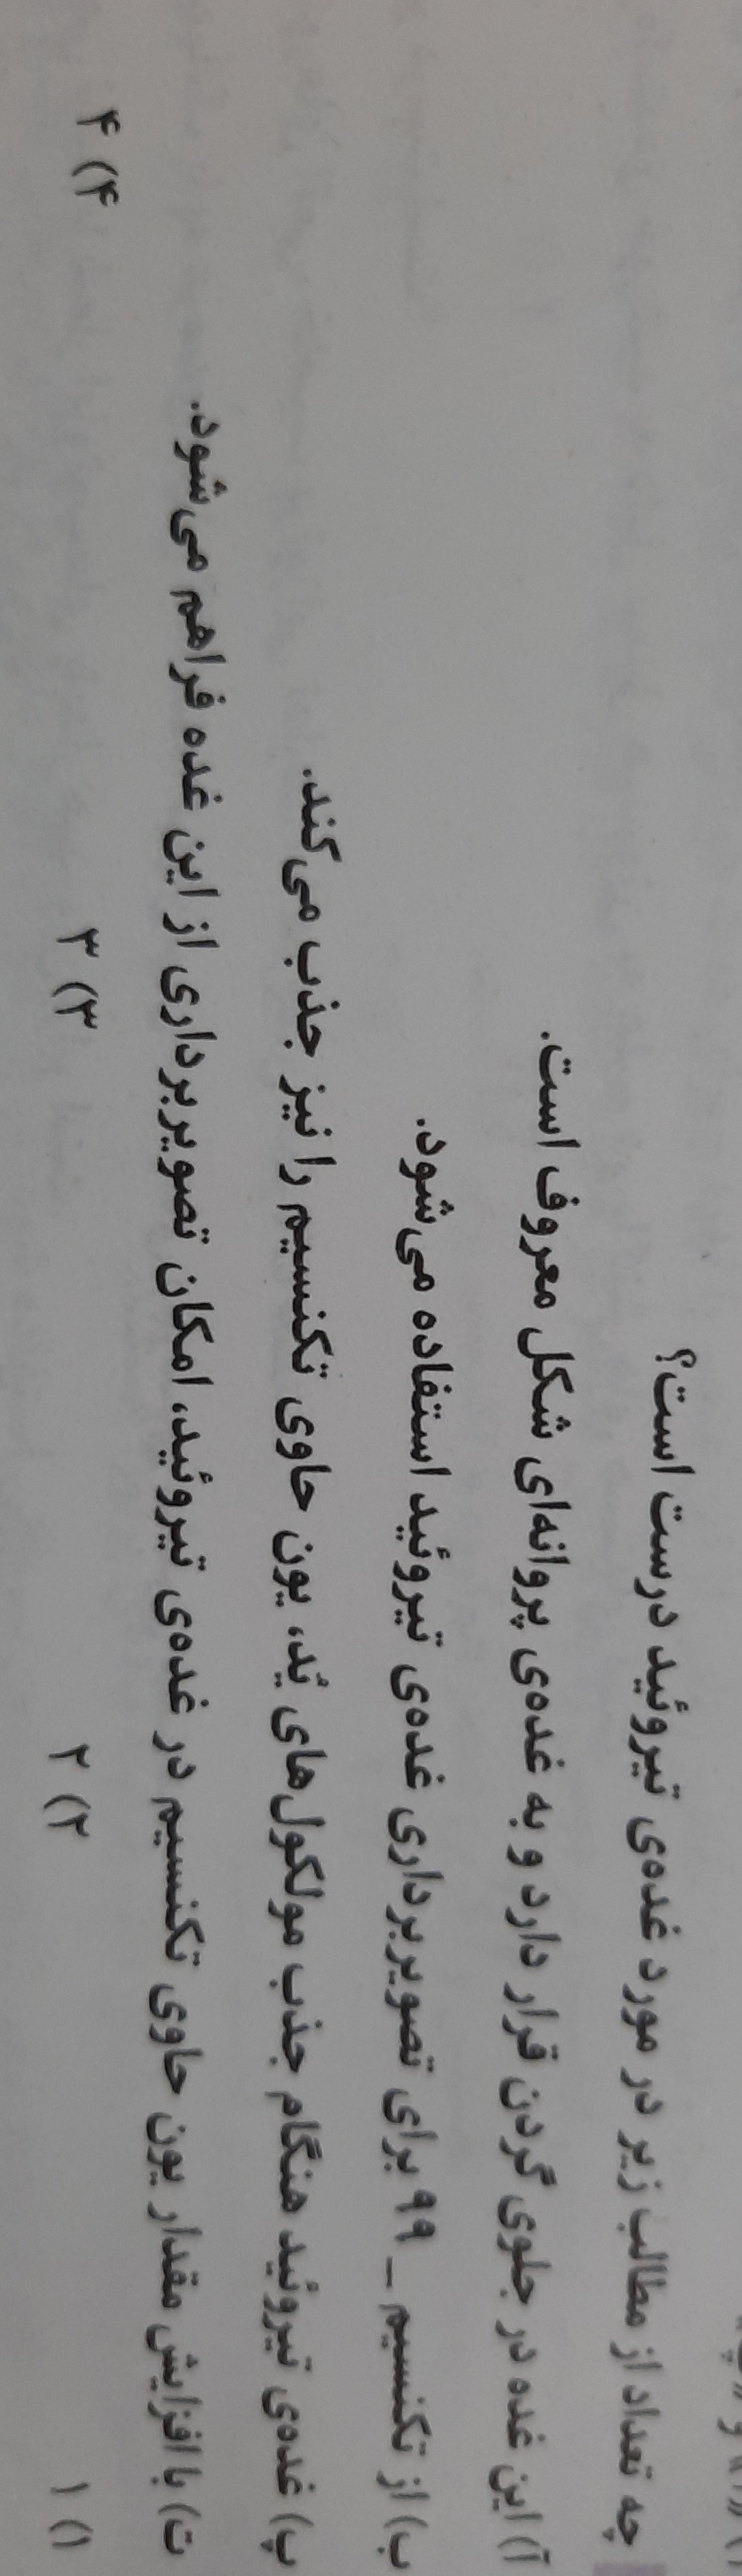 چه تعداد از مطالب زیر در مورد غده‌ی تیروئید درست است؟
آ) این غده در جلوی گردن قرار دارد و به غده‌ی پروانه‌ای شکل معروف است.
ب) از تکنسیم _ ۹۹ برای تصویربرداری غده‌ی تیروئید استفاده می‌شود.
پ) غده‌ی تیروئید هنگام جذب مولکول‌های ید، یون حاوی تکنسیم را نیز جذب می‌کند.
ت) با افزایش مقدار یون حاوی تکنسیم در غده‌ی تیروئید، امکان تصویربرداری از این غده فراهم می‌شود.
۱) ۱ ۲) ۲ ۳) ۳ ۴) ۴